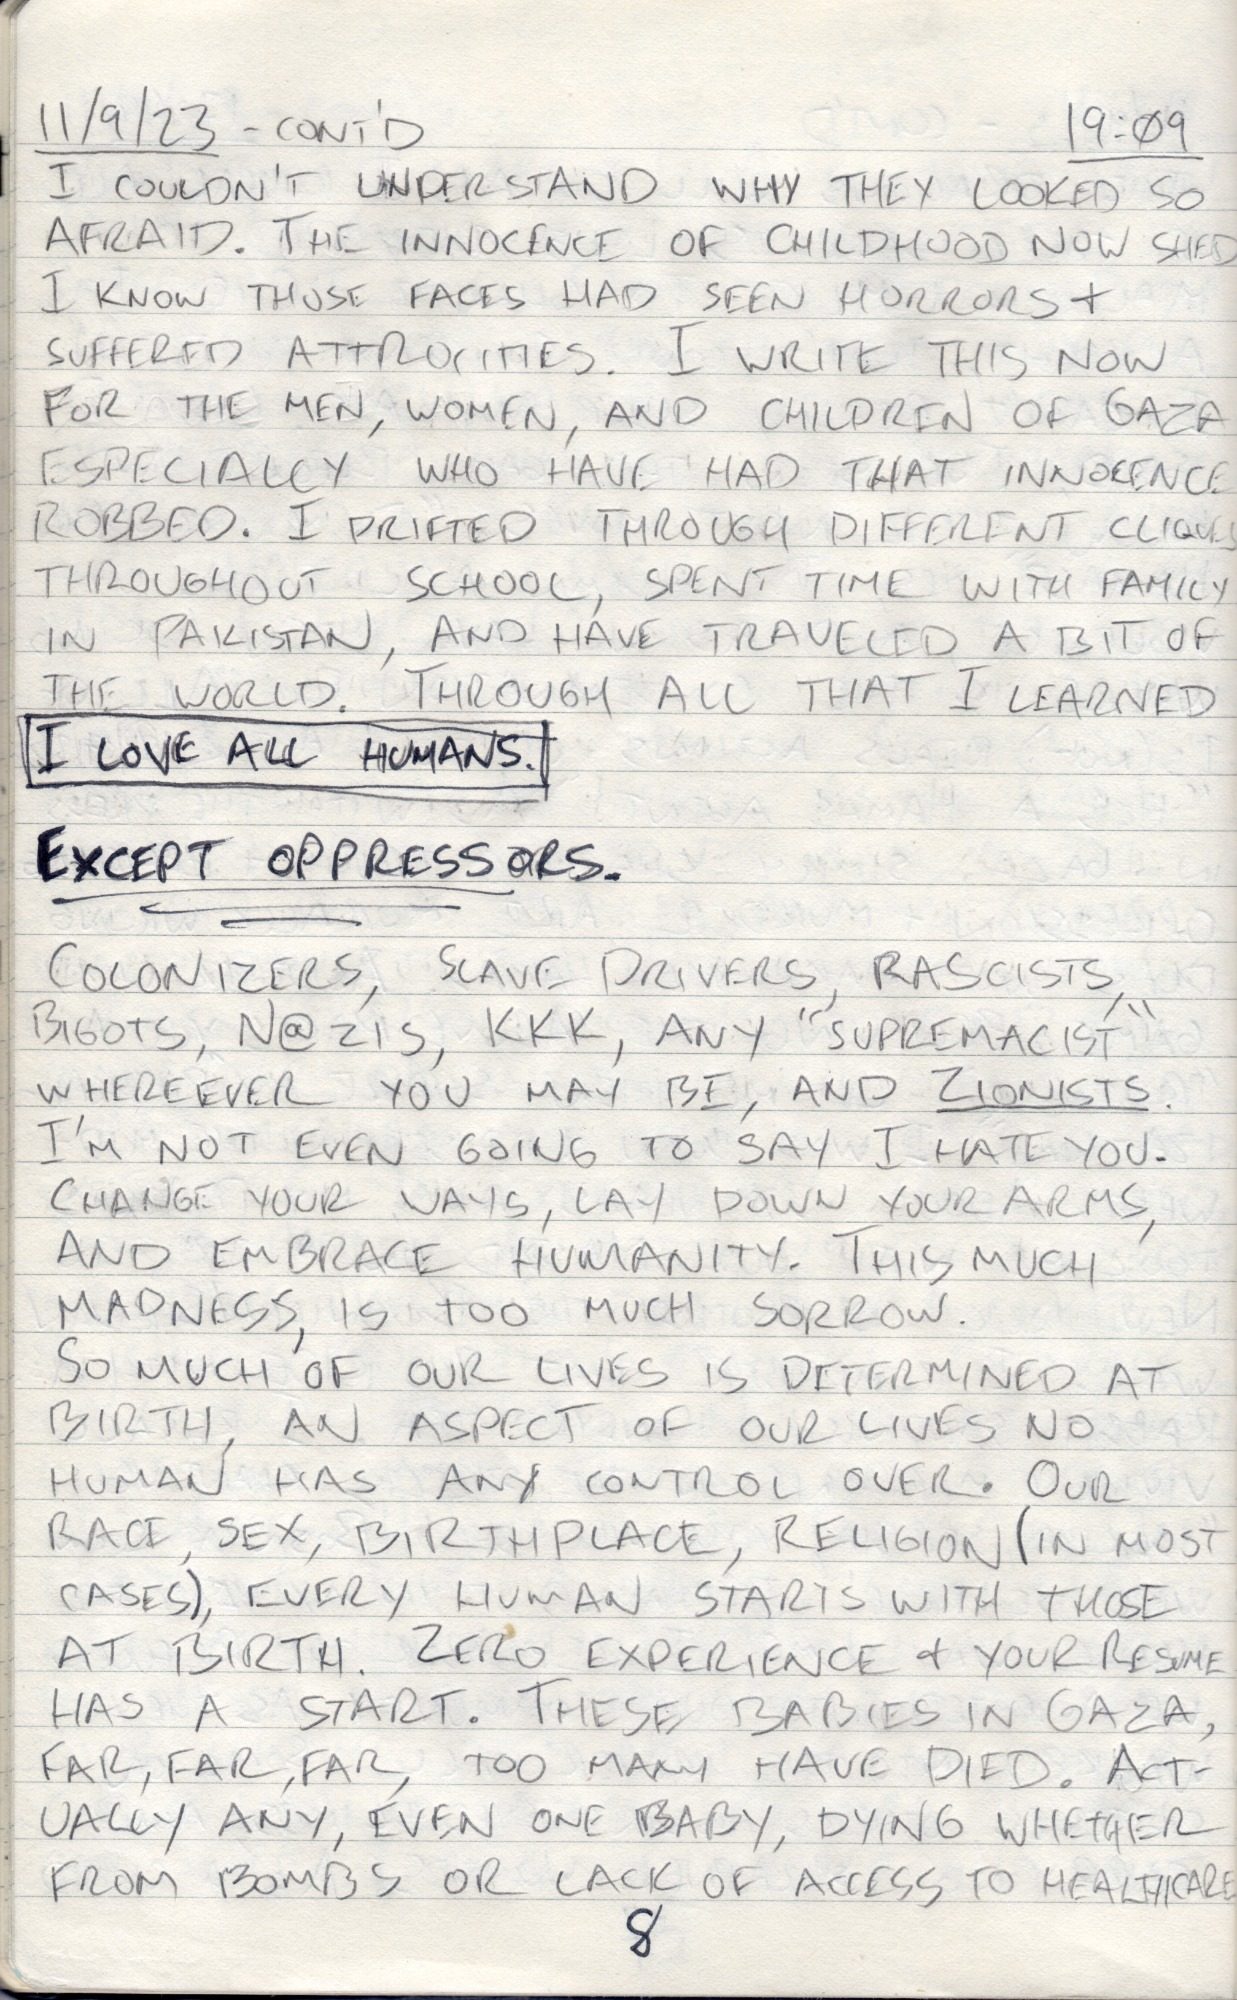 11/9/23 - CONT'D 19:09
I COULDN'T UNDERSTAND WHY THEY LOOKED SO
AFRAID. THE INNOCENCE OF CHILDHOOD NOW SHED
I KNOW THOSE FACES HAD SEEN HORRORS +
SUFFERED ATTROCITIES. I WRITE THIS NOW
FOR THE MEN, WOMEN, AND CHILDREN OF GAZA
ESPECIALLY WHO HAVE HAD THAT INNOCENCE
ROBBED. I DRIFTED THROUGH DIFFERENT CLIQUES
THROUGHOUT SCHOOL, SPENT TIME WITH FAMILY
IN PAKISTAN, AND HAVE TRAVELED A BIT OF
THE WORLD. THROUGH ALL THAT I LEARNED
I LOVE ALL HUMANS.
EXCEPT OPPRESSORS.
COLONIZERS, SLAVE DRIVERS, RASCISTS,
BIGOTS, N@ZIS, KKK, ANY "SUPREMACIST"
WHEREEVER YOU MAY BE, AND ZIONISTS.
I'M NOT EVEN GOING TO SAY I HATE YOU.
CHANGE YOUR WAYS, LAY DOWN YOUR ARMS,
AND EMBRACE HUMANITY. THIS MUCH
MADNESS, IS TOO MUCH SORROW.
SO MUCH OF OUR LIVES IS DETERMINED AT
BIRTH, AN ASPECT OF OUR LIVES NO
HUMAN HAS ANY CONTROL OVER. OUR
RACE, SEX, BIRTHPLACE, RELIGION (IN MOST
CASES), EVERY HUMAN STARTS WITH THOSE
AT BIRTH. ZERO EXPERIENCE + YOUR RESUME
HAS A START. THESE BABIES IN GAZA,
FAR, FAR, FAR, TOO MANY HAVE DIED. ACT-
UALLY ANY, EVEN ONE BABY, DYING WHETHER
FROM BOMBS OR LACK OF ACCESS TO HEALTHCARE
8